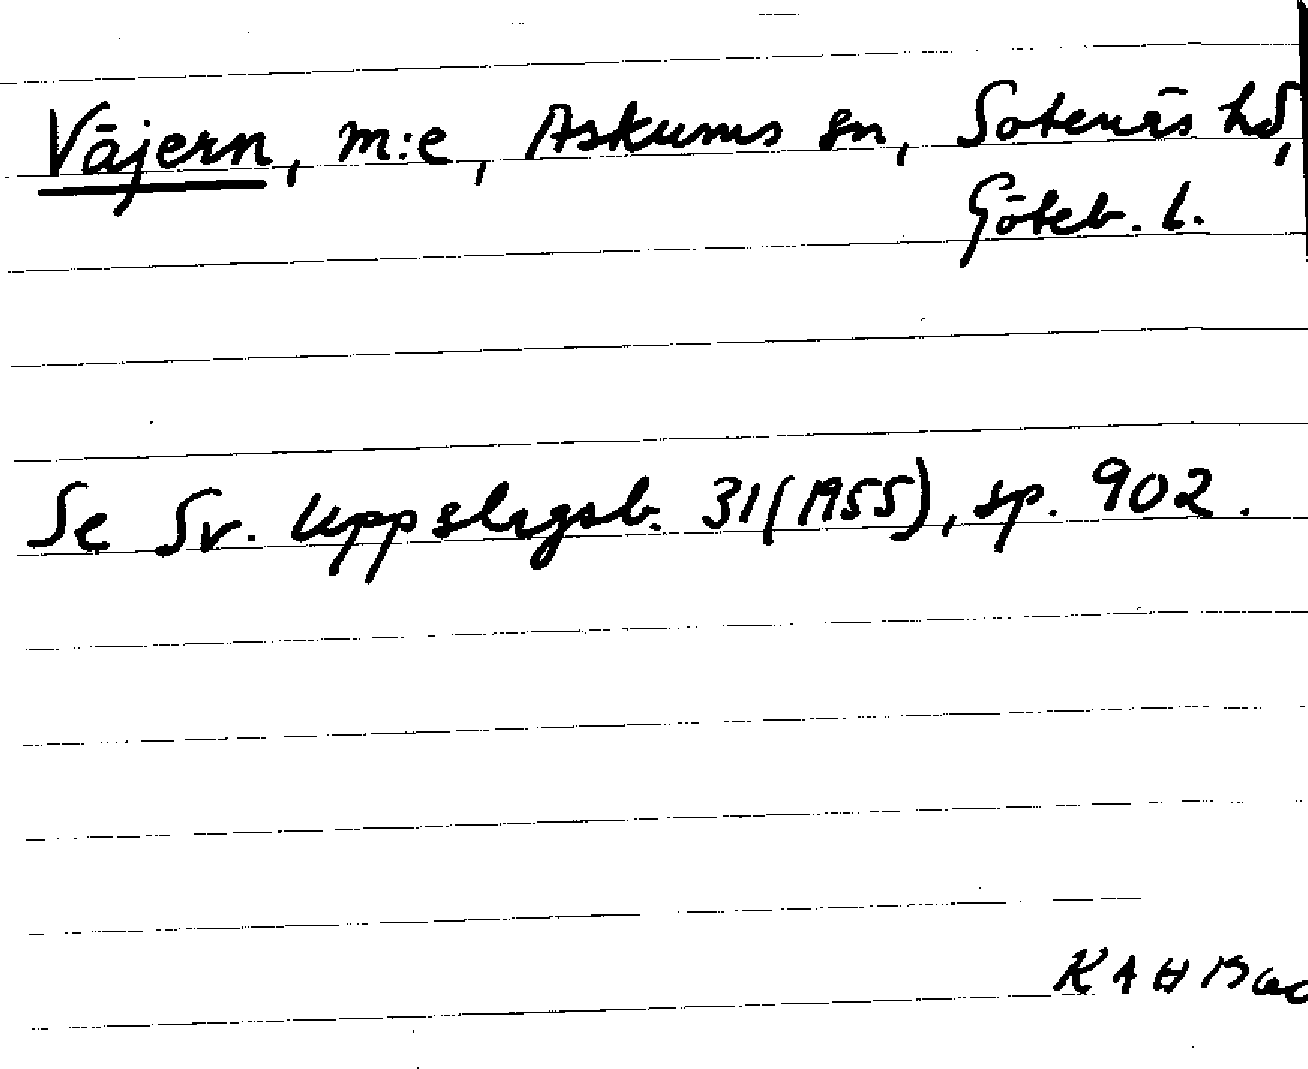 Väjern, m:e, Askums sn, Sotenäs hd,
Göteb. l.
Se Sv. Uppslagsb. 31 (1955), sp. 902.
KAH